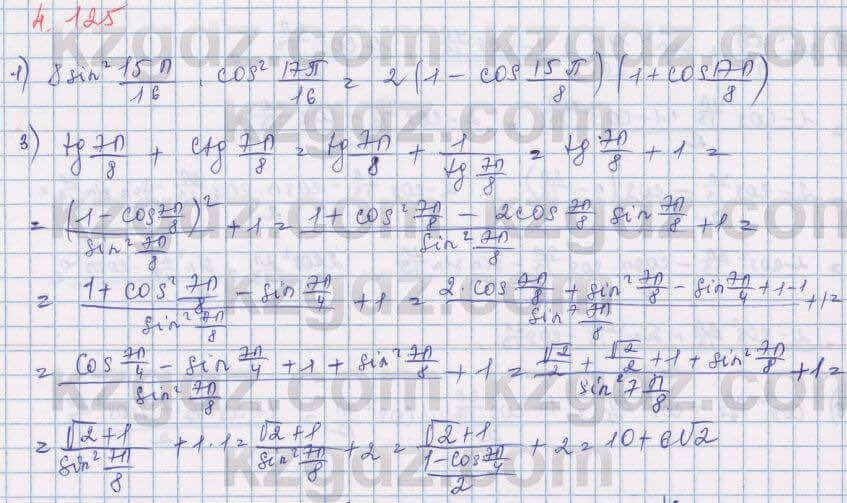 4.125
1) 8sin² 15π/16 · cos² 17π/16 = 2(1 - cos 15π/8)(1 + cos 17π/8)
3) tg 7π/8 + ctg 7π/8 = tg 7π/8 + 1/(tg 7π/8) = tg 7π/8 + 1 =
= (1 - cos 7π/8)²/(sin² 7π/8) + 1 = (1 + cos² 7π/8 - 2cos 7π/8 sin 7π/8)/(sin² 7π/8) + 1 =
= (1 + cos² 7π/8 - sin 7π/4)/(sin² 7π/8) + 1 = (2·cos 7π/8 + sin² 7π/8 - sin 7π/4 + 1 - 1)/(sin² 7π/8) + 1 =
= (cos 7π/4 - sin 7π/4 + 1 + sin² 7π/8)/(sin² 7π/8) + 1 = (√2/2 + √2/2 + 1 + sin² 7π/8)/(sin² 7π/8) + 1 =
= (√2+1)/(sin² 7π/8) + 1·1 = (√2+1)/(sin² 7π/8) + 2 = (√2+1)/((1-cos 7π/4)/2) + 2 = 10 + 6√2
kzgdz.com